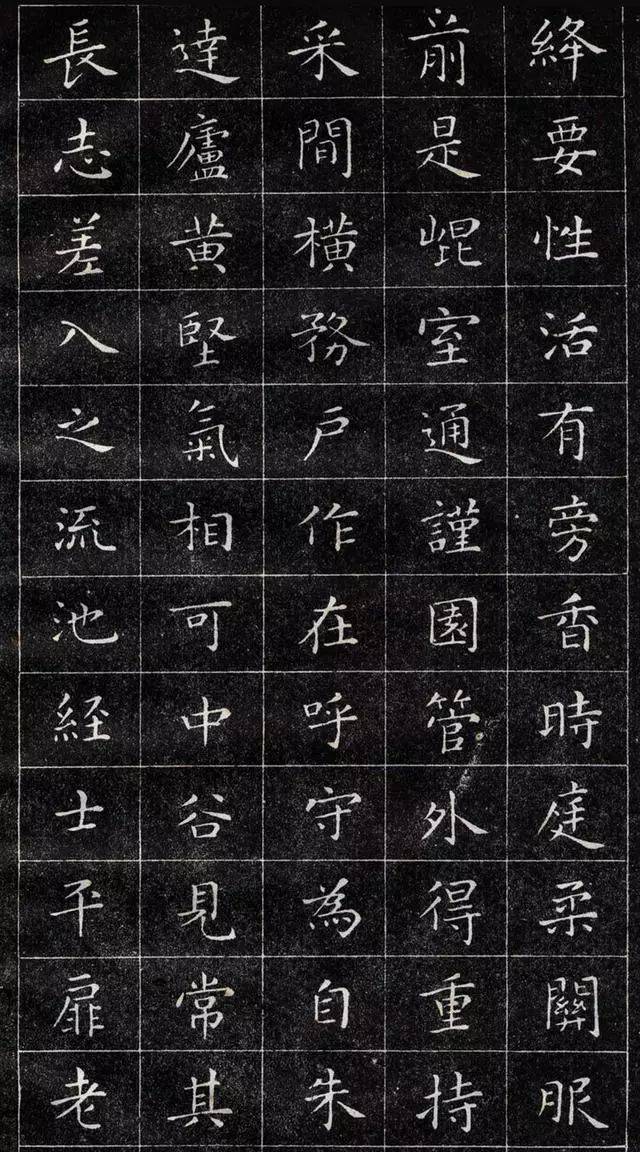 絳要性活有旁香時庭柔關服
前是崐室通謹園管外得重持
采間横務戶作在呼守為自朱
達廬黄堅氣相可中谷見常其
長志差入之流池経士平扉老